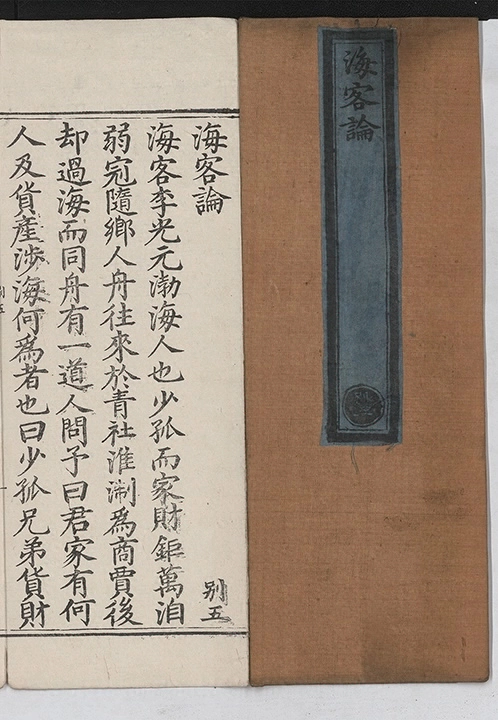 海客論
海客論
別五
海客李光元渤海人也少孤而家財鉅萬洎
弱冠隨鄉人舟往來於青社淮淛爲商賈後
却過海而同舟有一道人問予曰君家有何
人及貨產涉海何爲者也曰少孤兄弟貨財